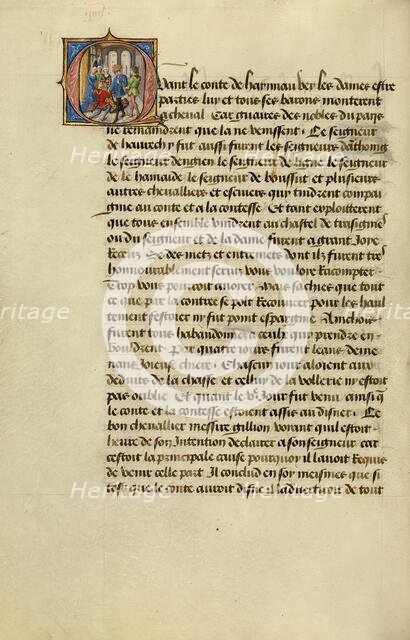 Quant le conte de haynnau vey les dames estre
parties luy et tous ses barons monterent
a cheval Car guaires des nobles du pays
ne remaindrent que la ne venissent Ce seigneur
de havrech y fut aussi furent les seigneurs dathoing
le seigneur denghien le seigneur de ligne le seigneur
de la hamaide le seigneur de boussut et plusieurs
autres chevalliers et escuiers qui tindrent compai
gnie au conte et a la contesse Et tant exploitterent
que tous ensemble vindrent au chastel de trasignies
ou du seigneur et de la dame furent a grant Joye
Receuz Se des metz et entremetz dont ilz furent tres
honnourablement servis vous vouloye Racompter
Trop vous pourroit anoyer Mais sachies que tout
ce que par la contree se poit Recouvrer pour les haul
tement festoier ny fut point espargnie Ainchois
furent tous habandonnez a ceulx qui prendre en
vouldrent Par quatre jours furent leans deme
nans Joieuse chiere Chascun jour aloient aux
deduits de la chasse et celluy de la vollerie ny estoit
pas oublie Et quant le ve Jour fut venu ainsi que
le conte et la contesse estoient assis au disner Ce
bon chevallier messire gillion voyant quil estoit
heure de son Intention declairer a son seigneur car
cestoit la principale cause pourquoy il lavoit Requis
de venir celle part Il conclud en soy meismes que si
tost que le conte auroit disne il ladvertiroit de tout
Heritage
Heritage
Heritage
Heritage
Heritage
Heritage